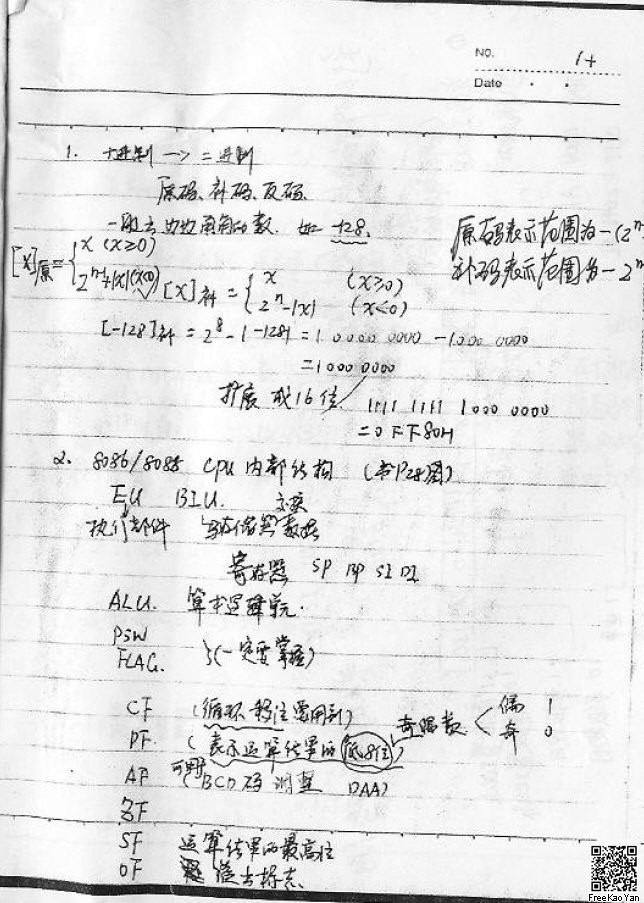 No. 1+
Date
1. 十进制 —> 二进制
原码、补码、反码
一般考边边角角的数. 如 -128.
原码表示范围为-(2ⁿ
补码表示范围为-2ⁿ
[X]原={ X (X≥0)
2ⁿ⁻¹+|X| (X≤0)
[X]补={ X (X≥0)
2ⁿ-|X| (X<0)
[-128]补 = 2⁸-|-128| = 1 0000 0000 - 1000 0000
= 1000 0000
扩展成16位 1111 1111 1000 0000
= 0FF80H
2. 8086/8088 CPU 内部结构 (书P28图)
EU BIU.
执行部件 与存储器 数据
交换
寄存器 SP BP SI DI
ALU. 算术逻辑单元.
PSW
FLAG. } (一定要掌握)
CF (循环移位要用到)
PF. (表示运算结果的低8位) 奇偶数 < 偶 1
奇 0
AF 可用 (BCD码调整 DAA)
ZF
SF 运算结果的最高位
OF 溢出标志.
FreeKaoYan